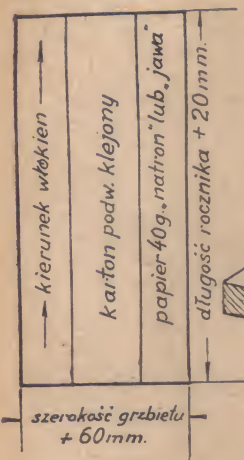 → kierunek włókien →
karton podw. klejony
papier 40g. „natron” lub „jawa”
długość rocznika + 20mm.
szerokość grzbietu
+ 60mm.